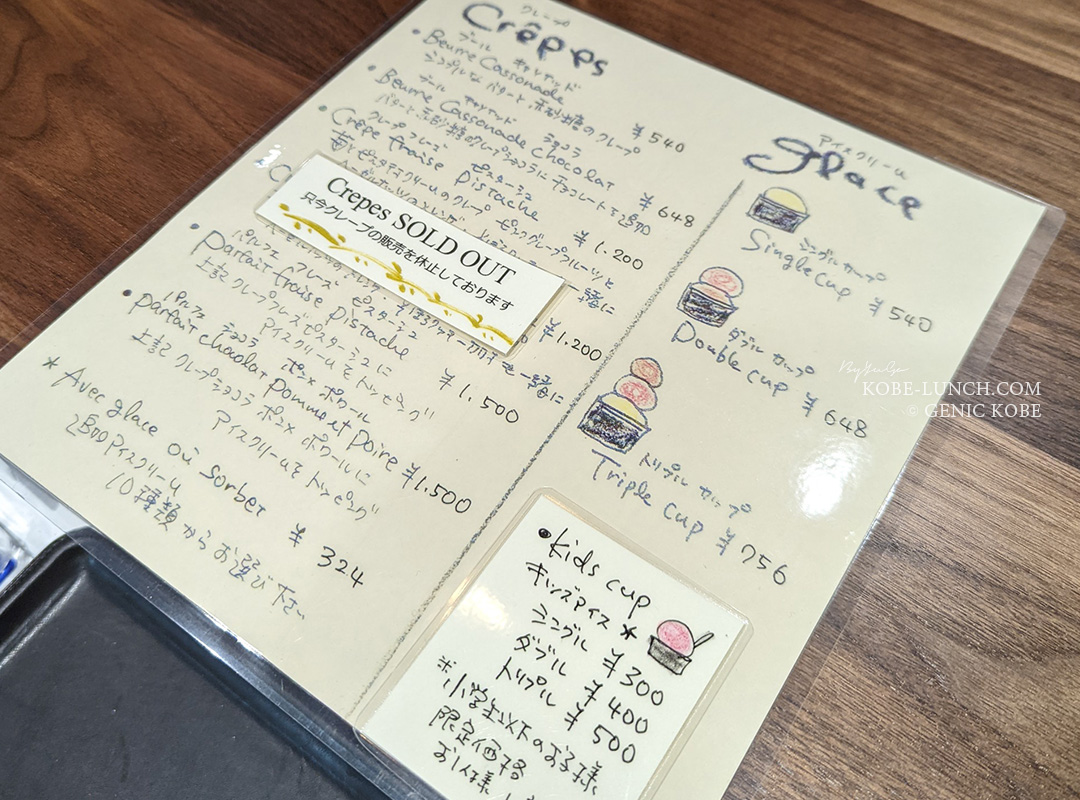 クレープ
Crêpes
ブール キャソナッド
• Beurre Cassonade
シンプルなバターと赤砂糖のクレープ
¥540
ブール キャソナッド ショコラ
• Beurre Cassonade chocolat
バターと赤砂糖のクレープショコラにチョコレートを追加
¥648
クレープ フレーズ ピスターシュ
• Crêpe fraise pistache
苺とピスタチオクリームのクレープ ピンクグレープフルーツと
一緒に
¥1.200
Crepes SOLD OUT
只今クレープの販売を休止しております
一緒に
¥1.200
パルフェ フレーズ ピスターシュ
• Parfait fraise pistache
上記クレープフレーズピスターシュに
アイスクリームをトッピング
¥1.500
パルフェ ショコラ ポンム ポワール
• parfait chocolat pomme et poire ¥1.500
上記クレープショコラポンムポワールに
アイスクリームをトッピング
* Avec glace ou sorbet
¥324
アイスクリーム
10種類からお選び下さい
アイスクリーム
glace
シングルカップ
Single cup ¥540
ダブルカップ
Double cup ¥648
トリプルカップ
Triple cup ¥756
• kids cup
キッズアイス *
シングル ¥300
ダブル ¥400
トリプル ¥500
※小学生以下のお子様
限定価格
お1人様
KOBE-LUNCH.COM
© GENIC KOBE